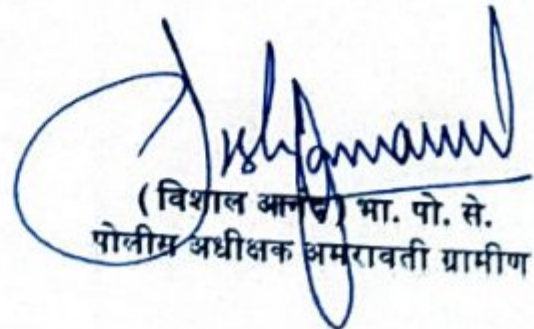 (विशाल आनंद) भा. पो. से.
पोलीस अधीक्षक अमरावती ग्रामीण